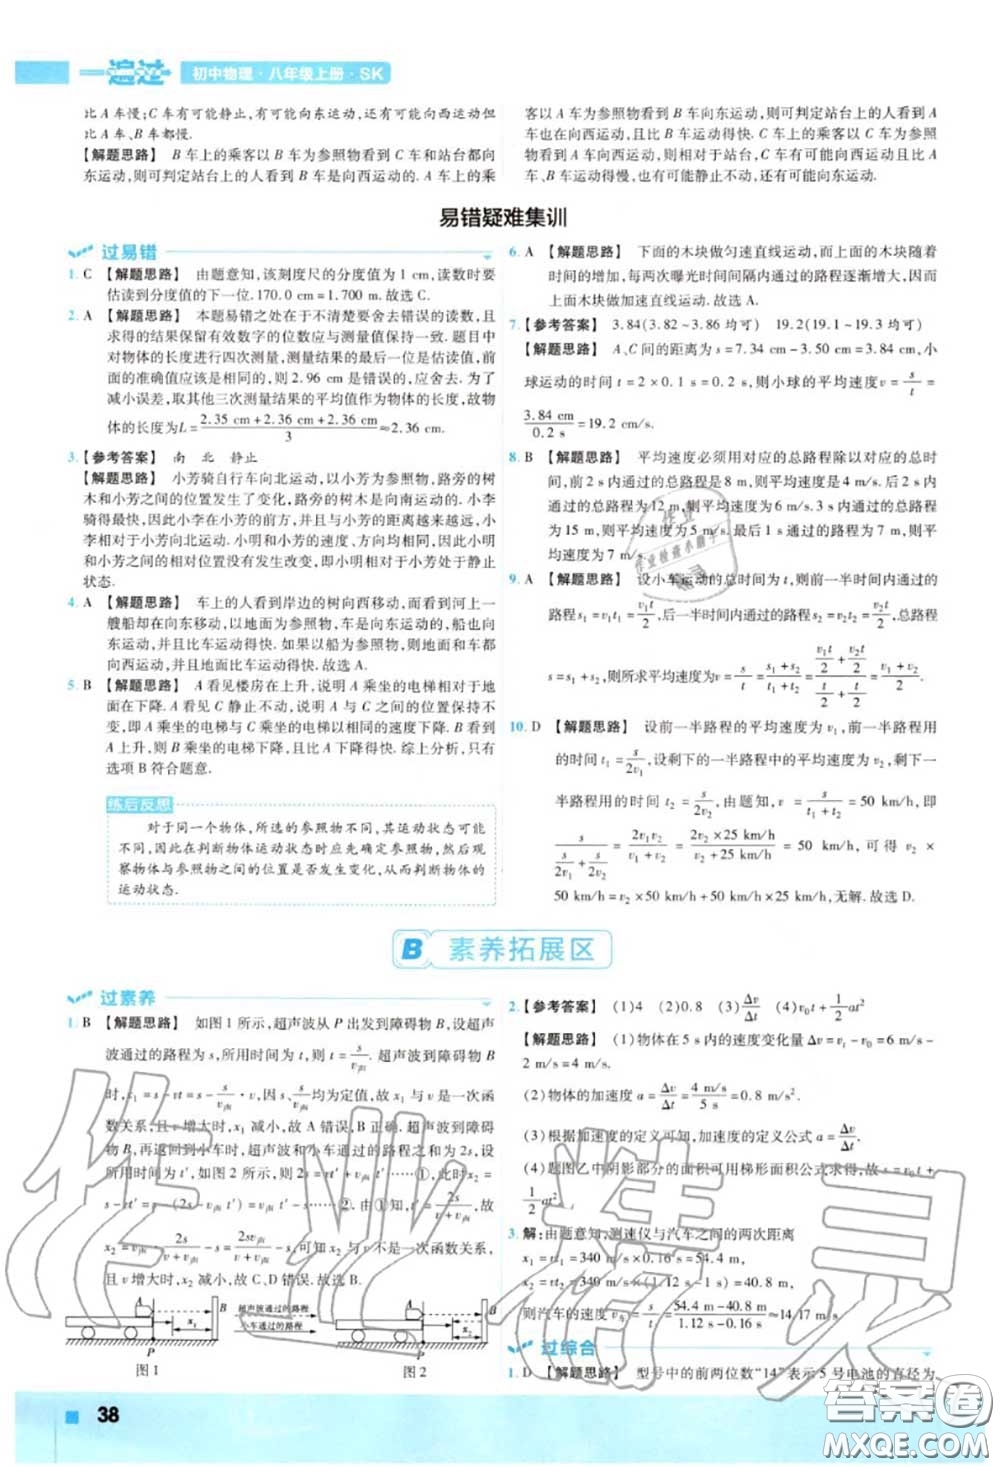 一遍过 初中物理·八年级上册·SK
比 A 车慢;C 车有可能静止,有可能向东运动,还有可能向西运动但
比 A 车、B 车都慢.
【解题思路】 B 车上的乘客以 B 车为参照物看到 C 车和站台都向
东运动,则可判定站台上的人看到 B 车是向西运动的. A 车上的乘
客以 A 车为参照物看到 B 车向东运动,则可判定站台上的人看到 A
车也在向西运动,且比 B 车运动得快. C 车上的乘客以 C 车为参照
物看到 A、B 车向西运动,则 C 车有可能向西运动且比 A 车、B 车运动得慢,也有可能静止不动,还有可能向东运动.
易错疑难集训
过易错
1. C 【解题思路】 由题意知,该刻度尺的分度值为 1 cm,读数时要
估读到分度值的下一位. 170.0 cm = 1.700 m. 故选 C.
2. A 【解题思路】 本题易错之处在于不清楚要舍去错误的读数,且
求得的结果保留有效数字的位数应与测量值保持一致. 题目中
对物体的长度进行四次测量,测量结果的最后一位是估读值,前
面的准确值应该是相同的,则 2.96 cm 是错误的,应舍去. 为了
减小误差,取其他三次测量结果的平均值作为物体的长度,故物
体的长度为L = (2.35 cm + 2.36 cm + 2.36 cm)/3 ≈ 2.36 cm.
3. 【参考答案】 南 北 静止
【解题思路】 小芳骑自行车向北运动,以小芳为参照物,路旁的树
木和小芳之间的位置发生了变化,路旁的树木是向南运动的. 小李
骑得最快,因此小李在小芳的前方,并且与小芳的距离越来越大,
则小李相对于小芳向北运动. 小明和小芳的速度、方向均相同,则
小明和小芳之间的位置没有发生改变,即小明相对于小芳处于静止
状态.
4. A 【解题思路】 车上的人看到岸边的树向西移动,而看到河上一
艘船却在向东移动,以地面为参照物,车是向东运动的,船也向
东运动,并且船相对地面比车运动得快. 如果以船为参照物,则地面和车都
向西运动,并且地面比车运动得快. 故选 A.
5. B 【解题思路】 A 看见楼房在上升,说明 A 乘坐的电梯相对于地
面在下降. A 看见 C 静止不动,说明 A 与 C 之间的位置保持不
变,即 A 乘坐的电梯与 C 乘坐的电梯以相同的速度下降. B 看到
A 上升,则 B 乘坐的电梯下降,且比 A 下降得快. 综上分析,只有
选项 B 符合题意.
练后反思
对于同一个物体,所选的参照物不同,其运动状态可能
不同,因此在判断物体运动状态时应先确定参照物,然后观
察物体与参照物之间的位置是否发生变化,从而判断物体的
运动状态.
6. A 【解题思路】 下面的木块做匀速直线运动,而上面的木块随着
时间的增加,每两次曝光时间间隔内通过的路程逐渐增大,因而
上面木块做加速直线运动. 故选 A.
7. 【参考答案】 3.84(3.82 ~ 3.86 均可) 19.2(19.1 ~ 19.3 均可)
【解题思路】 A、C 间的距离为 s = 7.34 cm - 3.50 cm = 3.84 cm,小
球运动的时间 t = 2 × 0.1 s = 0.2 s,则小球的平均速度v = s/t =
3.84 cm/0.2 s = 19.2 cm/s.
8. B 【解题思路】 平均速度必须用对应的总路程除以对应的总时
间,前 2 s 通过的总路程是 8 m,则平均速度是 4 m/s. 后 2 s 内
通过的总路程为 12 m,则平均速度为 6 m/s. 3 s 内通过的总路程
为 15 m,则平均速度为 5 m/s. 最后 1 s 通过的路程为 7 m,平均速
度为 7 m/s.
9. A 【解题思路】 设小车运动的总时间为 t,则前一半时间内通过的
路程 s₁ = v₁t₁ = v₁t/2,后一半时间内通过的路程 s₂ = v₂t₂ = v₂t/2,总路程
s = s₁ + s₂,则所求平均速度为v = s/t = (s₁ + s₂)/t = (v₁t/2 + v₂t/2)/(t/2 + t/2) = (v₁ + v₂)/2.
10. D 【解题思路】 设前一半路程的平均速度为 v₁,前一半路程用
的时间 t₁ = s/2v₁,设剩下的一半路程中的平均速度为 v₂,则后一
半路程用的时间 t₂ = s/2v₂,由题知, v = s/(t₁ + t₂) = 50 km/h,即
s/(s/2v₁ + s/2v₂) = 2v₁v₂/(v₁ + v₂) = (2v₂ × 25 km/h)/(v₂ + 25 km/h) = 50 km/h,可得 v₂ ×
50 km/h = v₂ × 50 km/h + 50 × 25 km/h,无解. 故选 D.
B 素养拓展区
过素养
1. B 【解题思路】 如图 1 所示,超声波从 P 出发到障碍物 B,设超声
波通过的路程为 s,所用时间为 t,则 t = s/v声. 超声波到障碍物 B
时, x₁ = s - vt = s - s/v声 · v,因 s、v声 均为定值,故 x₁ 与 v 是一次
函数关系,且 v 增大时, x₁ 减小,故 A 错误,B 正确. 超声波到障碍物
B,再返回到小车时,超声波和小车通过的路程之和为 2s,设
所用时间为 t′,如图 2 所示,则 v声t′ + vt′ = 2s ……①, x₂ =
s - vt′ = s - (2s - v声t′) = v声t′ - s ……②,由①知, t′ = 2s/(v + v声),则
x₂ = v声 · 2s/(v + v声) - s = 2sv声/(v + v声) - s,可知 x₂ 与 v 不是一次函数关系,
且 v 增大时, x₂ 减小,故 C、D 错误. 故选 B.
B x₁ P 图 1
超声波通过的路程
小车通过的路程
B x₂ P 图 2
2. 【参考答案】 (1)4 (2)0.8 (3)Δv/Δt (4)v₀t + 1/2 at²
【解题思路】 (1)物体在 5 s 内的速度变化量 Δv = vₜ - v₀ = 6 m/s -
2 m/s = 4 m/s.
(2)物体的加速度 a = Δv/Δt = 4 m/s/5 s = 0.8 m/s².
(3)根据加速度的定义可知,加速度的定义公式 a = Δv/Δt.
(4)题图乙中阴影部分的面积可用梯形面积公式求得,故 s = v₀t +
1/2 at².
3. 解:由题意知,测速仪与汽车之间的两次距离
x₁ = vt₁ = 340 m/s × 0.16 s = 54.4 m,
x₂ = vt₂ = 340 m/s × (1.12 s - 1 s) = 40.8 m,
则汽车的速度 v车 = s/t = (54.4 m - 40.8 m)/(1.12 s - 0.16 s) ≈ 14.17 m/s.
过综合
1. D 【解题思路】 型号中的前两位数“14”表示 5 号电池的直径为
38
作业精灵
答案卷
MXQE.COM